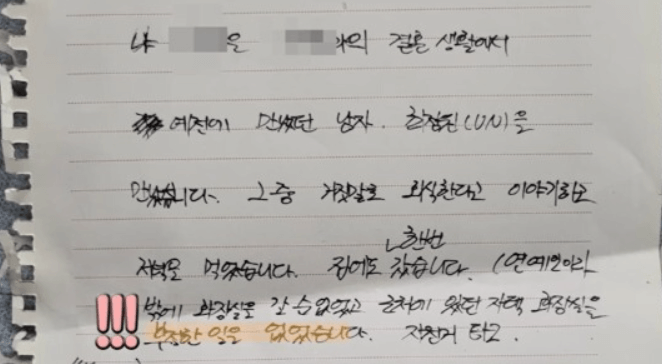 나 은 와의 결혼 생활에서
예전에 만났던 남자. 최정원(UN)을
만났습니다. 그 중 거짓말로 회식한다고 이야기하고
한번
저녁을 먹었습니다. 집에도 갔습니다. (연예인이라
!!! 밖에 화장실을 갈 수 없었고 근처에 있던 자택 화장실을
부정한 일은 없었습니다. 자전거 타고